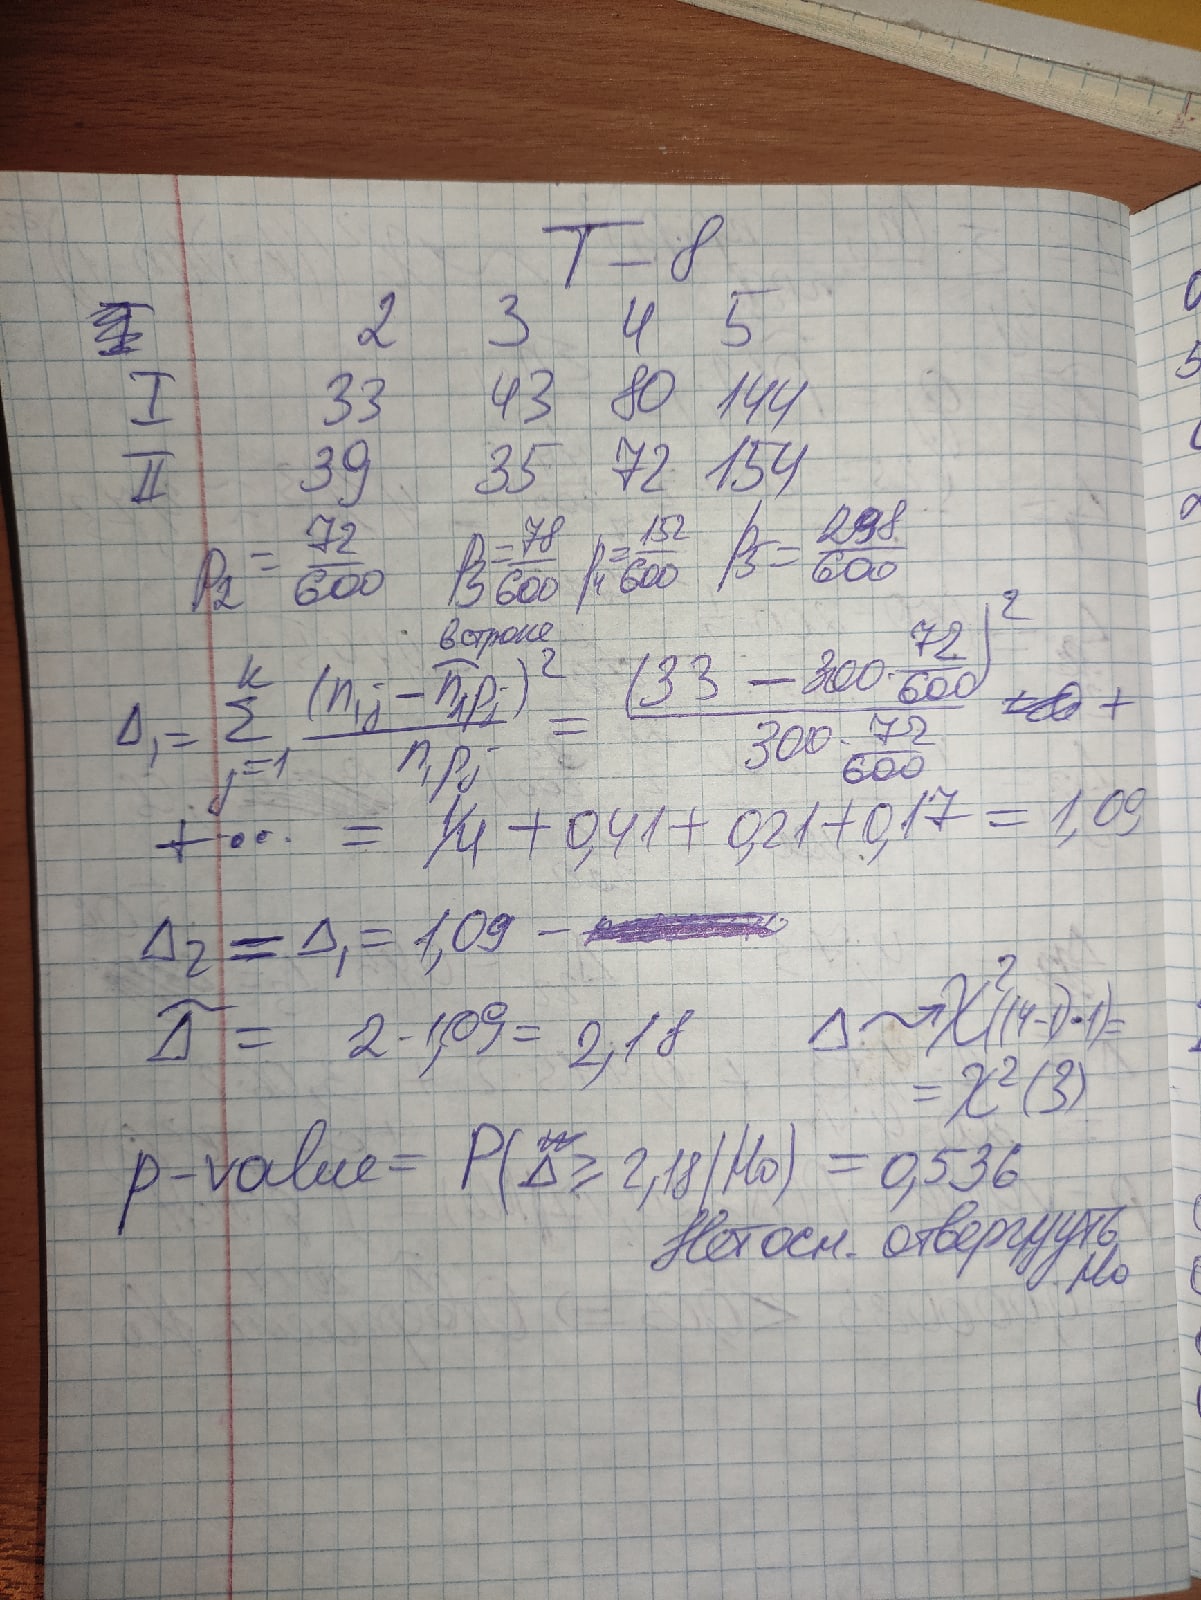 T-8
2 3 4 5
I 33 43 80 144
II 39 35 72 154
p₂ = 72/600 p₃ = 78/600 p₄ = 152/600 p₅ = 298/600
в строке
Δ₁ = Σ_{j=1}^{k} (n₁ⱼ - n₁pⱼ)²/n₁pⱼ = (33 - 300·72/600)²/(300·72/600) +
+ ... = 1/4 + 0,41 + 0,21 + 0,17 = 1,09
Δ₂ = Δ₁ = 1,09 -
Δ̃ = 2·1,09 = 2,18 Δ ⇝ χ²((4-1)·1) =
= χ²(3)
p-value = P(Δ ≥ 2,18 | H₀) = 0,536
Нет осн. отвергнуть
H₀